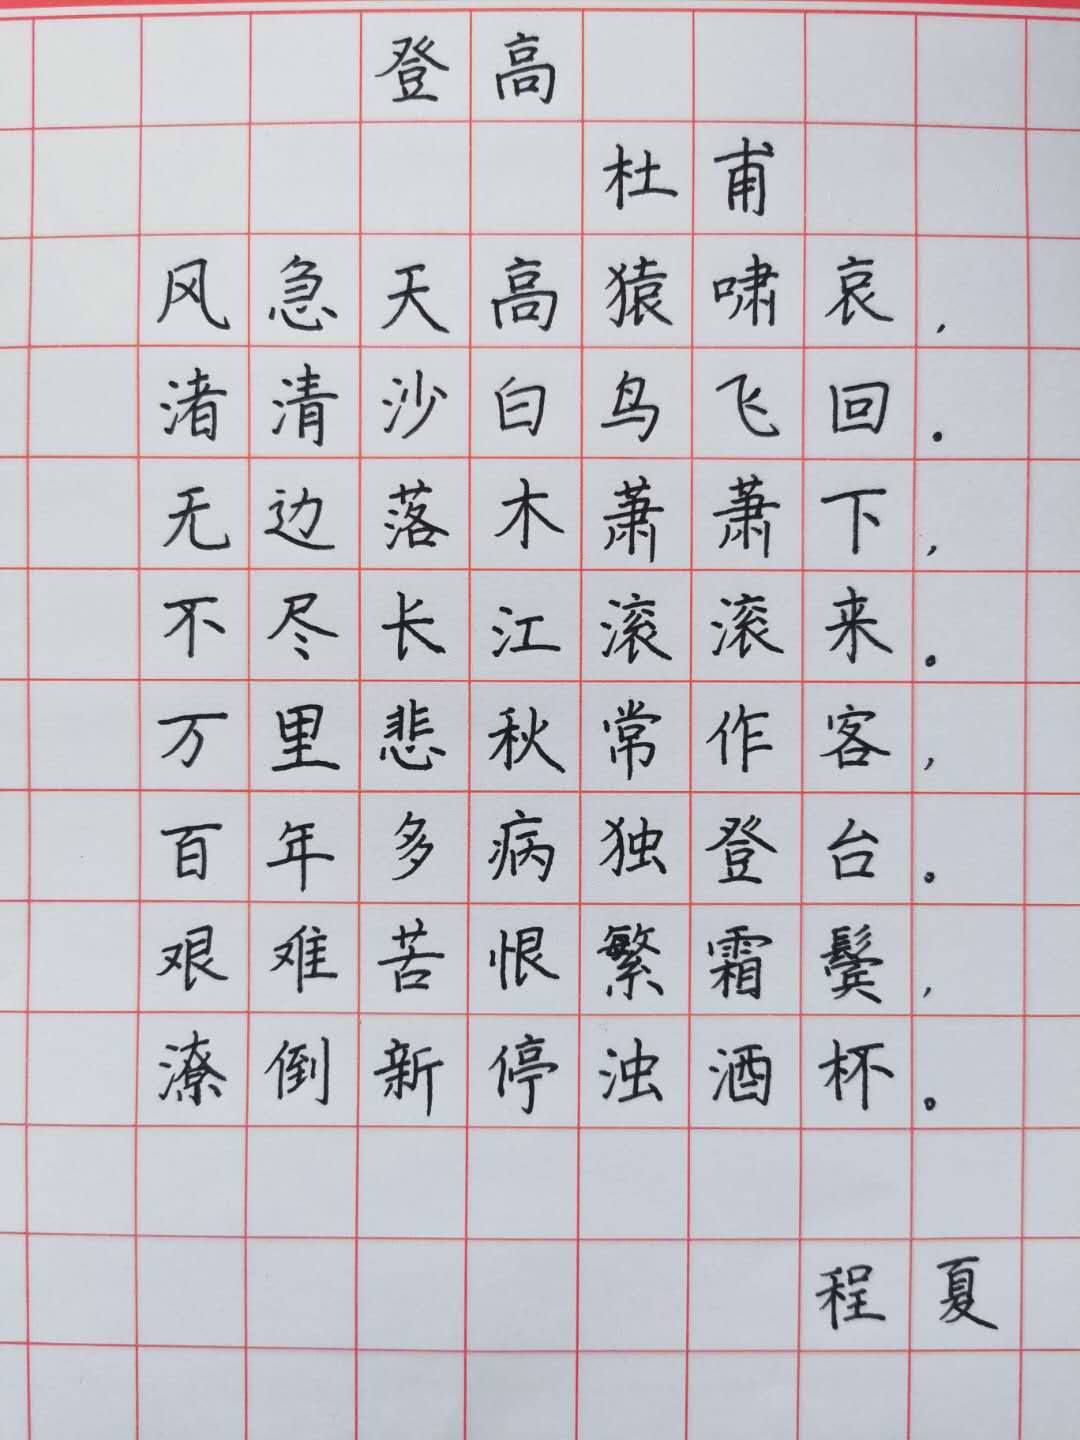 登高
杜甫
风急天高猿啸哀，
渚清沙白鸟飞回。
无边落木萧萧下，
不尽长江滚滚来。
万里悲秋常作客，
百年多病独登台。
艰难苦恨繁霜鬓，
潦倒新停浊酒杯。
程夏